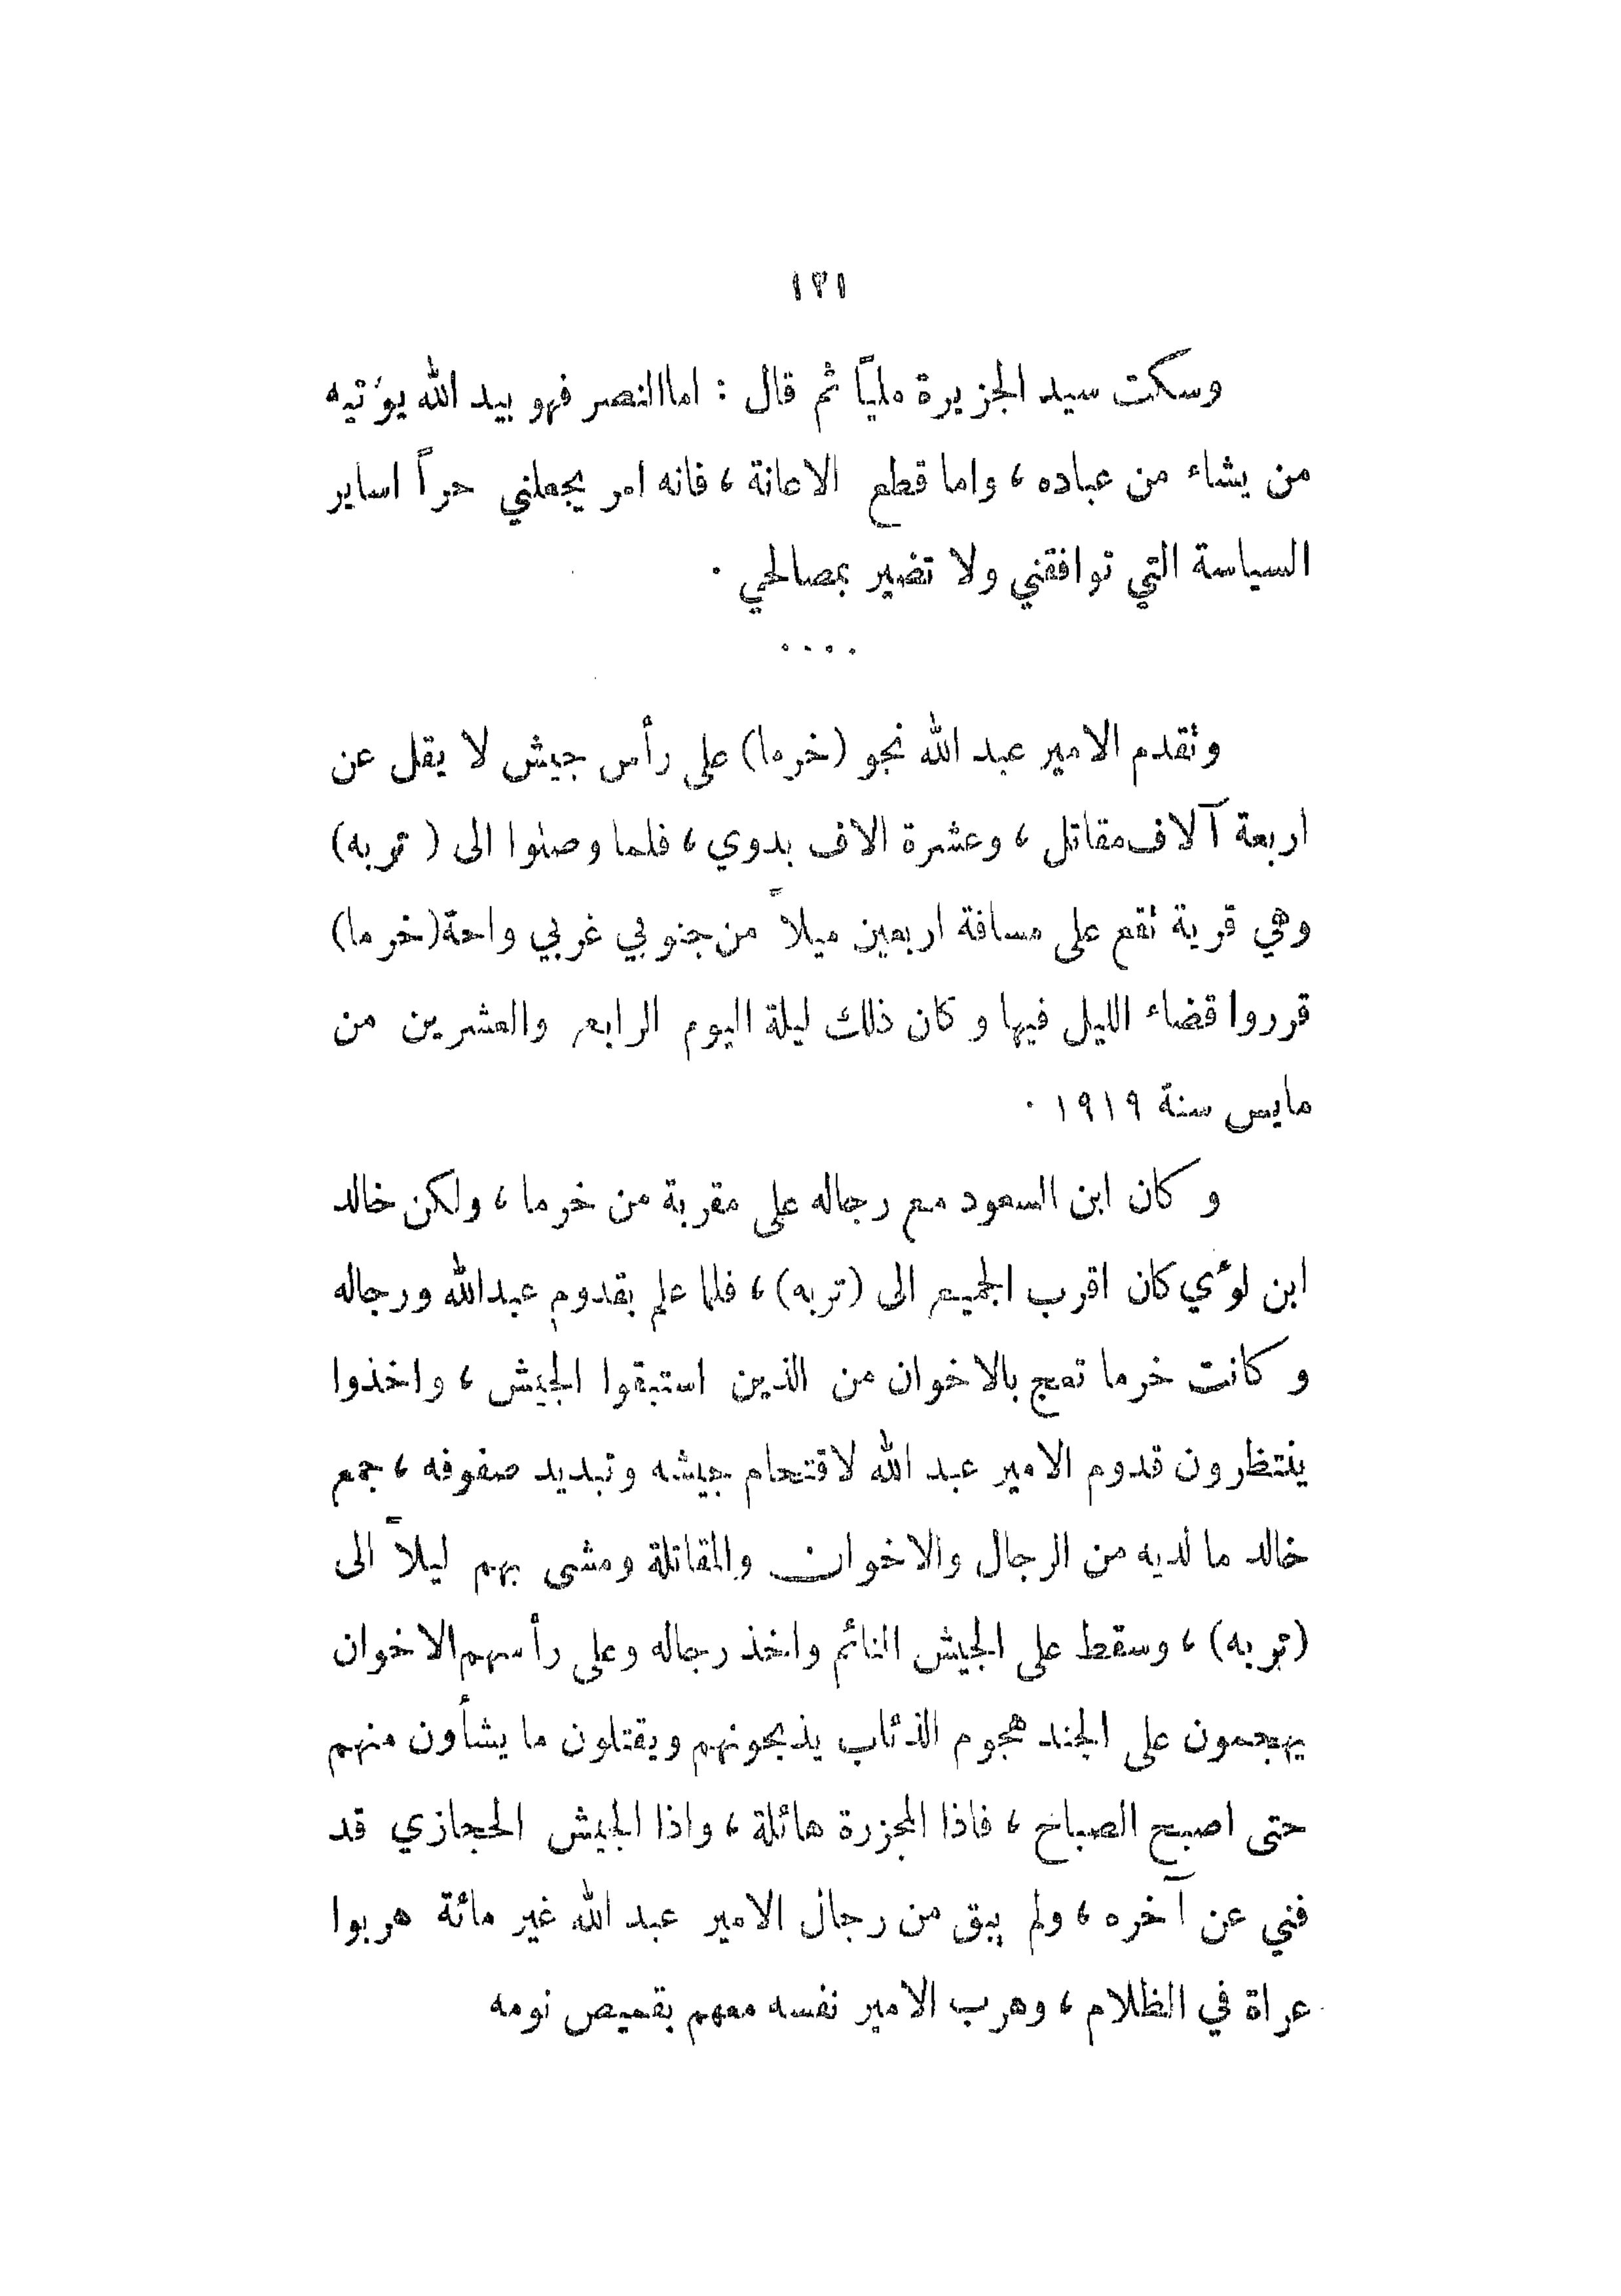 ١٣١
وسكت سيد الجزيرة مليًا ثم قال : اما النصر فهو بيد الله يؤتيه
من يشاء من عباده ، واما قطع الاعانة ، فانه امر يجعلني حراً اساير
السياسة التي توافقني ولا تضير بمصالحي .
. . . .
وتقدم الامير عبد الله نحو (خرما) على رأس جيش لا يقل عن
اربعة آلاف مقاتل ، وعشرة الاف بدوي ، فلما وصلوا الى ( تربه)
وهي قرية تقع على مسافة اربعين ميلاً من جنوبي غربي واحة (خرما)
قرروا قضاء الليل فيها وكان ذلك ليلة اليوم الرابع والعشرين من
مايس سنة ١٩١٩ .
وكان ابن السعود مع رجاله على مقربة من خرما ، ولكن خالد
ابن لؤي كان اقرب الجميع الى (تربه) ، فلما علم بقدوم عبدالله ورجاله
وكانت خرما تعج بالاخوان من الذين استبقوا الجيش ، واخذوا
ينتظرون قدوم الامير عبد الله لاقتحام جيشه وتبديد صفوفه ، جمع
خالد ما لديه من الرجال والاخوان والمقاتلة ومشى بهم ليلاً الى
(تربه) ، وسقط على الجيش النائم واخذ رجاله وعلى رأسهم الاخوان
يهجمون على الجند هجوم الذئاب يذبحونهم ويقتلون ما يشأون منهم
حتى اصبح الصباح ، فاذا المجزرة هائلة ، واذا الجيش الحجازي قد
فني عن آخره ، ولم يبق من رجال الامير عبد الله غير مائة هربوا
عراة في الظلام ، وهرب الامير نفسه معهم بقميص نومه